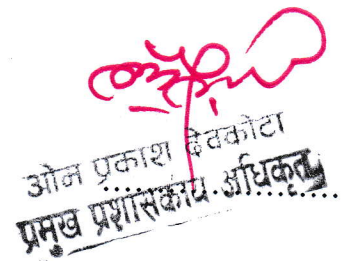 ओन प्रकाश देवकोटा
प्रमुख प्रशासकीय अधिकृत